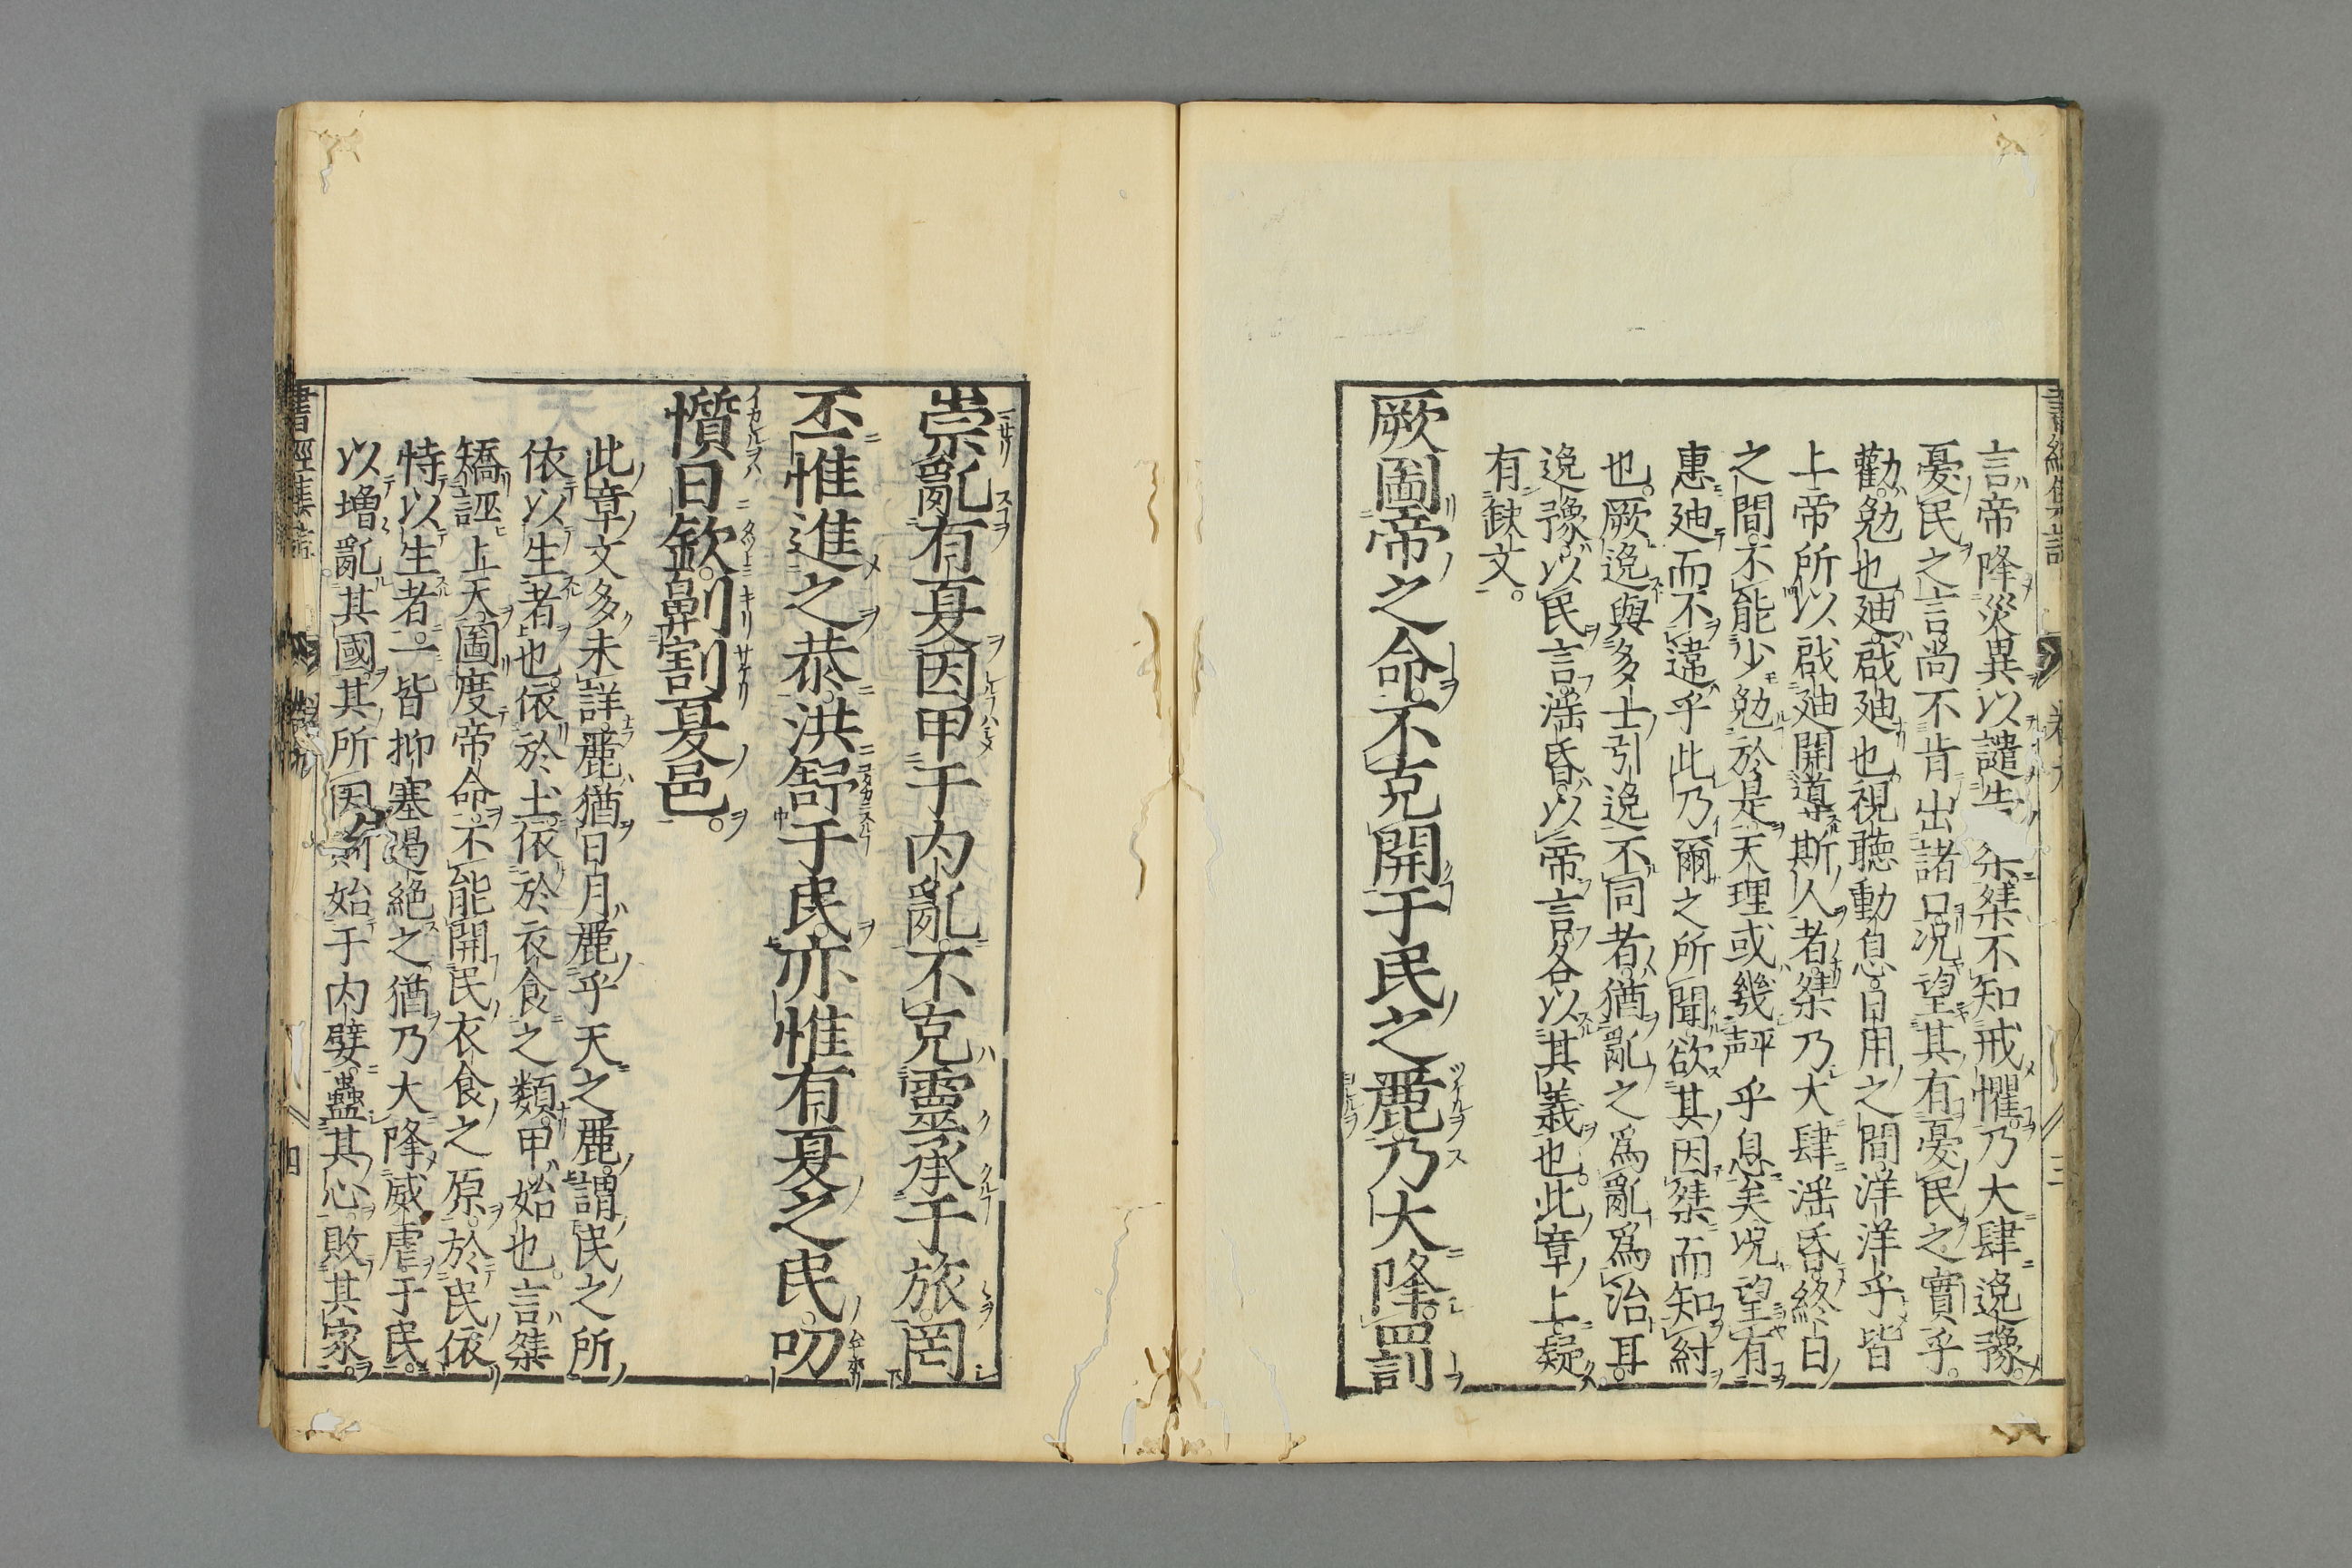 言帝降災異以譴告桀桀不知戒懼乃大肆逸豫
憂民之言尚不肯出諸口况望其有憂民之實乎。
勸勉也廸啟廸也視聽動息日用之間洋洋乎皆
上帝所以啟廸開導斯人者桀乃大肆滛昏終日
之間不能少勉於是天理或幾乎息矣况望有
惠廸而不違乎此乃爾之所聞欲其因桀而知紂
也。厥逸與多士引逸不同者猶亂之爲亂爲治耳。
逸豫以民言滛昏以帝言各以其義也。此章上疑
有缺文。
厥圖帝之命。不克開于民之麗。乃大降罰
崇亂有夏因甲于内亂。不克靈承于旅。罔
丕惟進之恭。洪舒于民。亦惟有夏之民。叨
懫日欽。劓割夏邑。
此章文多未詳麗猶日月麗乎天之麗。謂民之所
依以生者也。依於土。依於衣食之類。甲。始也。言桀
矯誣上天。圖度帝命。不能開民衣食之原。於民依
恃以生者。一皆抑塞遏絶之。猶乃大降威虐于民。
以増亂其國。其所因則始于内嬖蠱其心。敗其家。
書經集註
四